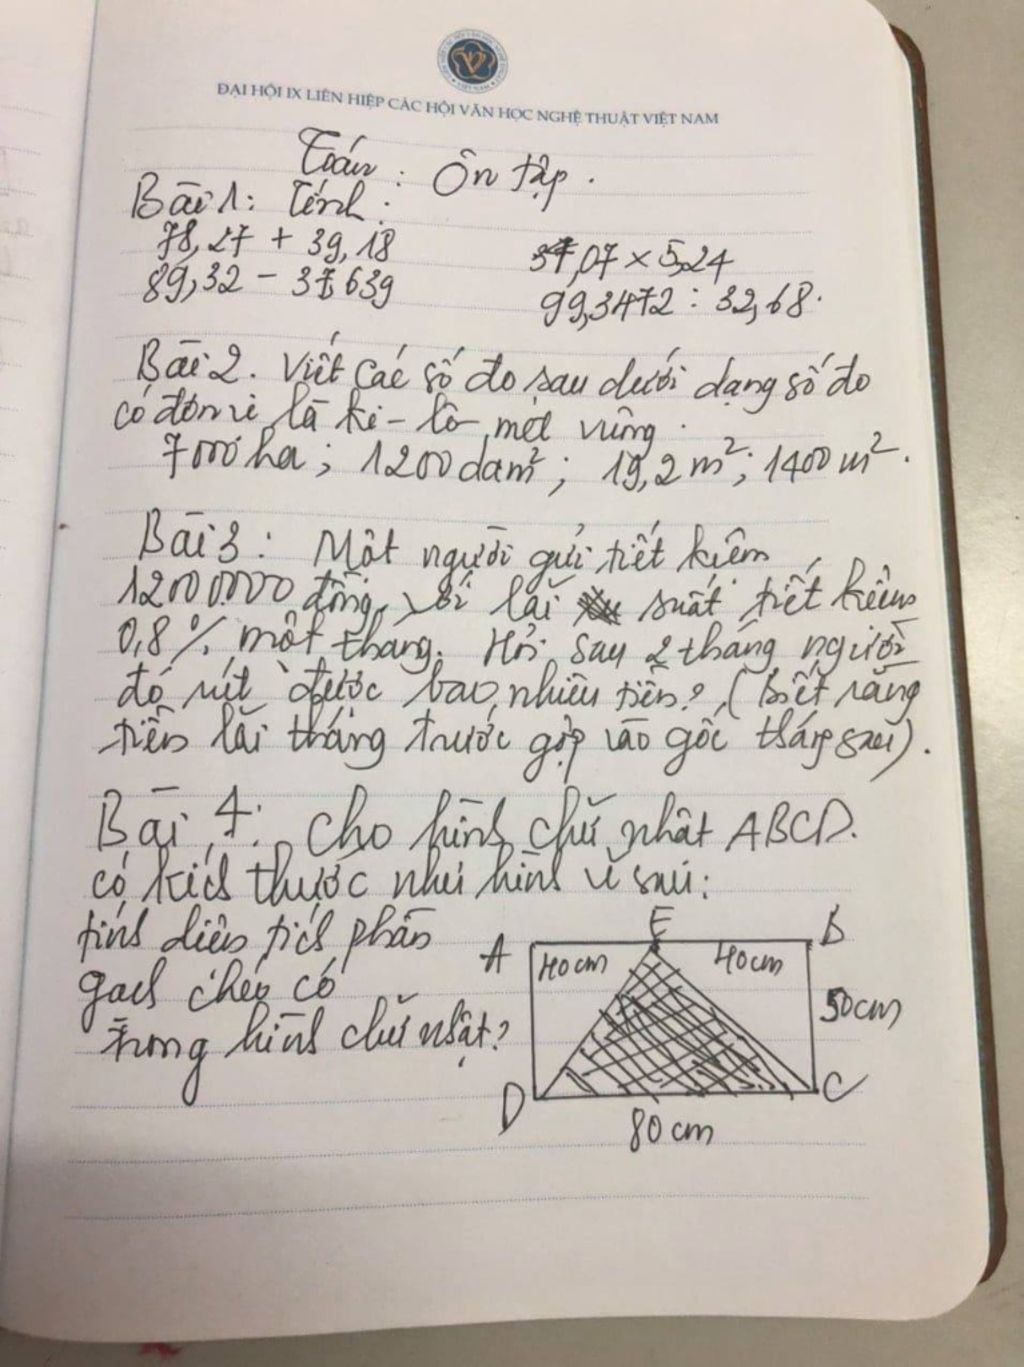 ĐẠI HỘI IX LIÊN HIỆP CÁC HỘI VĂN HỌC NGHỆ THUẬT VIỆT NAM
Toán: Ôn tập.
Bài 1: Tính:
78,27 + 39,18 37,07 × 5,24
89,32 - 37,639 99,3472 : 32,68.
Bài 2. Viết các số đo sau dưới dạng số đo
có đơn vị là ki-lô-mét vuông.
7000 ha; 1200 dam²; 19,2 m²; 1400 m².
Bài 3: Một người gửi tiết kiệm
12000.000 đồng, với lãi suất tiết kiệm
0,8% một tháng. Hỏi sau 2 tháng người
đó rút được bao nhiêu tiền? (Biết rằng
tiền lãi tháng trước gộp vào gốc tháng sau).
Bài 4: Cho hình chữ nhật ABCD.
có kích thước như hình vẽ sau:
tính diện tích phần
gạch chéo có
trong hình chữ nhật?
A E B
40cm 40cm
50cm
D C
80cm